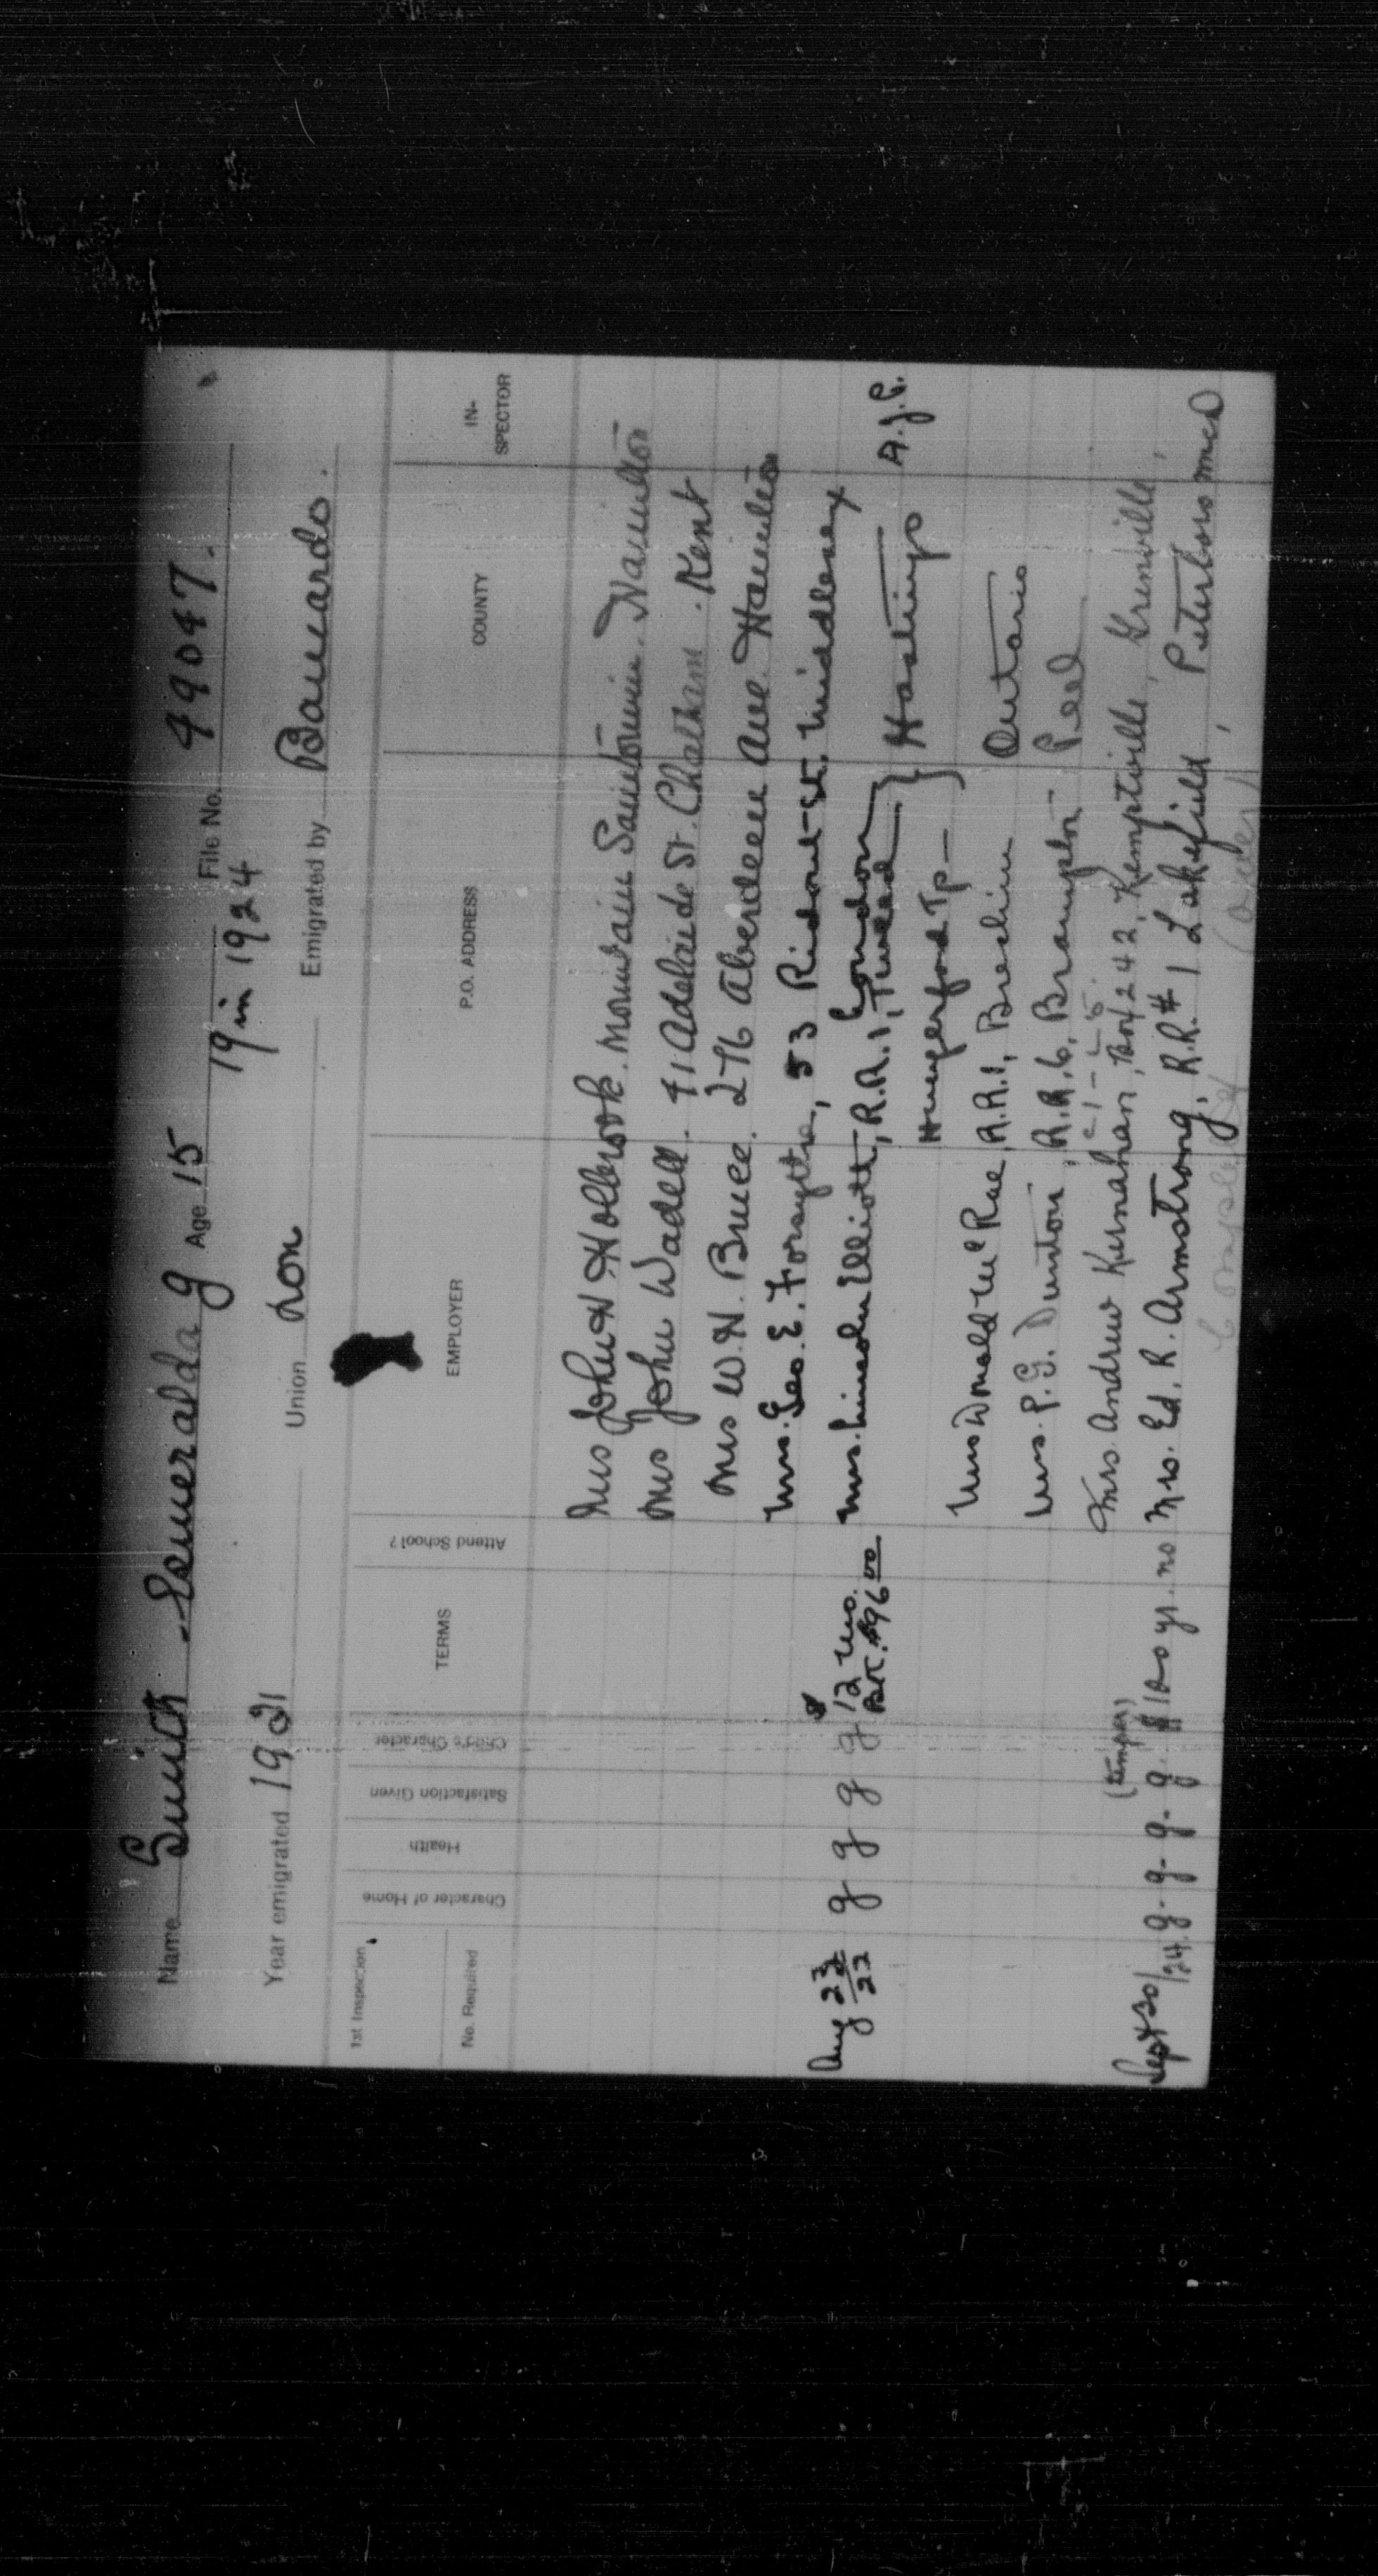 Name Smith - Esmeralda G Age 15 File No. 49047.
19 in 1924
Year emigrated 1921 Union Lon Emigrated by Barnardo.
1st Inspection
No. Required
Character of Home
Health
Satisfaction Given
Child's Character
TERMS
Attend School?
EMPLOYER
P.O. ADDRESS
COUNTY
IN-
SPECTOR
Mrs John H Holbrook. Mountain Sanitorium. Hamilton
Mrs John Wadell. 41 Adelaide St. Chatham. Kent
Mrs W.H. Bruce. 276 Aberdeen Ave. Hamilton
Mrs. Geo. E. Forsythe, 53 Ridout St. Middlesex
London
Aug 23/22 g g g g 12 mo. Mrs. Lincoln Elliott, R.R.1, Tweed } Hastings A.J.P.
$96.00
Hungerford Tp —
Mrs Donald McRae, R.R.1, Brechin Ontario
Mrs. P.G. Dunton, R.R.6, Brampton Peel
Mrs. Andrew Kernahan, Box 242, Kemptville, Grenville,
(temper)
Sept 30/24. g. g. g. g. yr. no Mrs. Ed. R. Armstrong, R.R.# 1 Lakefield, Peterboro
(over)